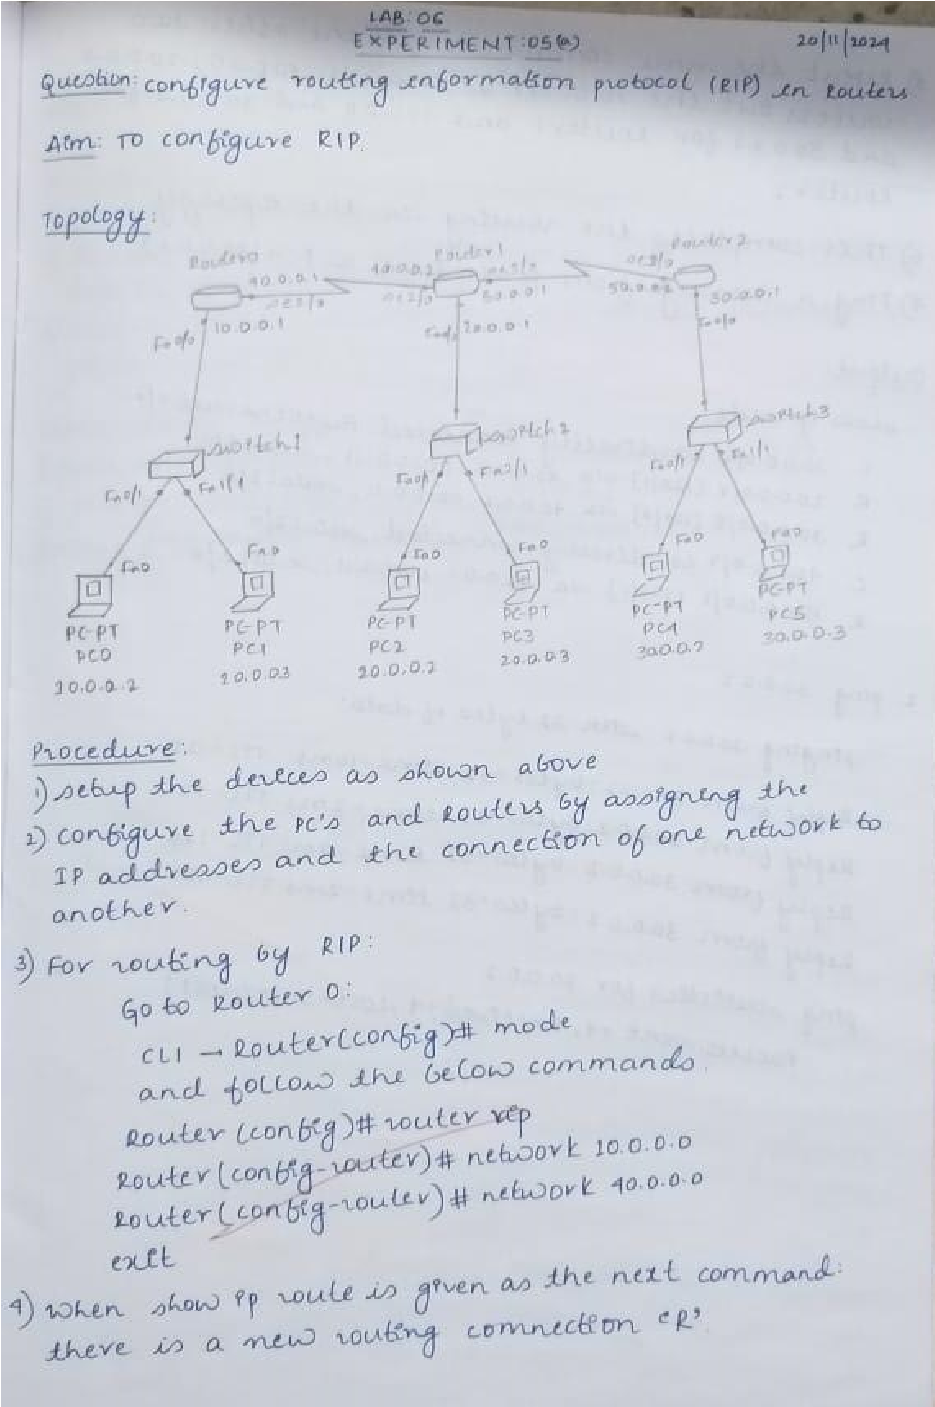 LAB: 06
EXPERIMENT: 05(a)
20/11/2024
Question: configure routing information protocol (RIP) in Routers
Aim: To configure RIP.
Topology:
Router0
Router1
Router2
40.0.0.1
40.0.0.2
se2/0
se2/0
50.0.0.1
50.0.0.2
30.0.0.1
Fa0/0
10.0.0.1
20.0.0.1
Fa0/0
switch1
switch2
switch3
Fa0/1
Fa1/1
Fa0/1
Fa0/1
Fa1/1
Fa0
Fa0
Fa0
Fa0
Fa0
Fa0
PC-PT
PC0
10.0.0.2
PC-PT
PC1
10.0.0.3
PC-PT
PC2
20.0.0.2
PC-PT
PC3
20.0.0.3
PC-PT
PC4
30.0.0.2
PC-PT
PC5
30.0.0.3
Procedure:
1) setup the devices as shown above
2) configure the PC's and Routers by assigning the
IP addresses and the connection of one network to
another.
3) For routing by RIP:
Go to Router 0:
CLI → Router(config)# mode
and follow the below commands.
Router (config)# router rip
Router (config-router)# network 10.0.0.0
Router (config-router)# network 40.0.0.0
exit
4) when show ip route is given as the next command:
there is a new routing comnection 'R'